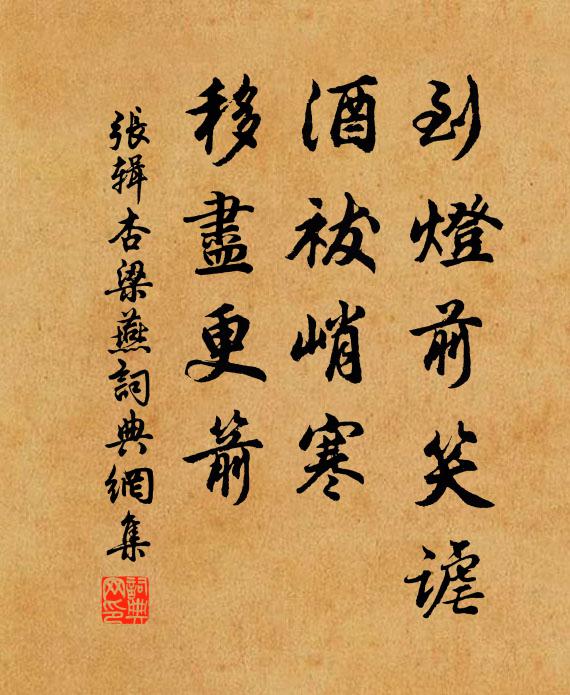 到燈前笑謔
酒祓峭寒
移盡更箭
張辑杏梁燕詞典網集
詞典
网印